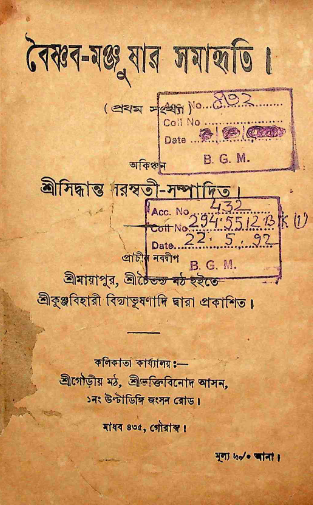 বৈষ্ণব-মঞ্জুষার সমাহৃতি।
(প্রথম সংখ্যা)
Acc. No...
Coll No
Date
B. G. M.
অকিঞ্চন
শ্রীসিদ্ধান্ত সরস্বতী-সম্পাদিত।
Acc. No 432
Coll No 294.5512
Date 22. 5. 92
B. G. M.
প্রাচীন নবদ্বীপ
শ্রীমায়াপুর, শ্রীচৈতন্য মঠ হইতে
শ্রীকুঞ্জবিহারী বিদ্যাভূষণাদি দ্বারা প্রকাশিত।
কলিকাতা কার্য্যালয়:—
শ্রীগৌড়ীয় মঠ, শ্রীভক্তিবিনোদ আসন,
১নং উল্টাডিঙ্গি জংসন রোড।
মাধব ৪৩৫, গৌরাব্দ।
মূল্য ৷৶/০ আনা।